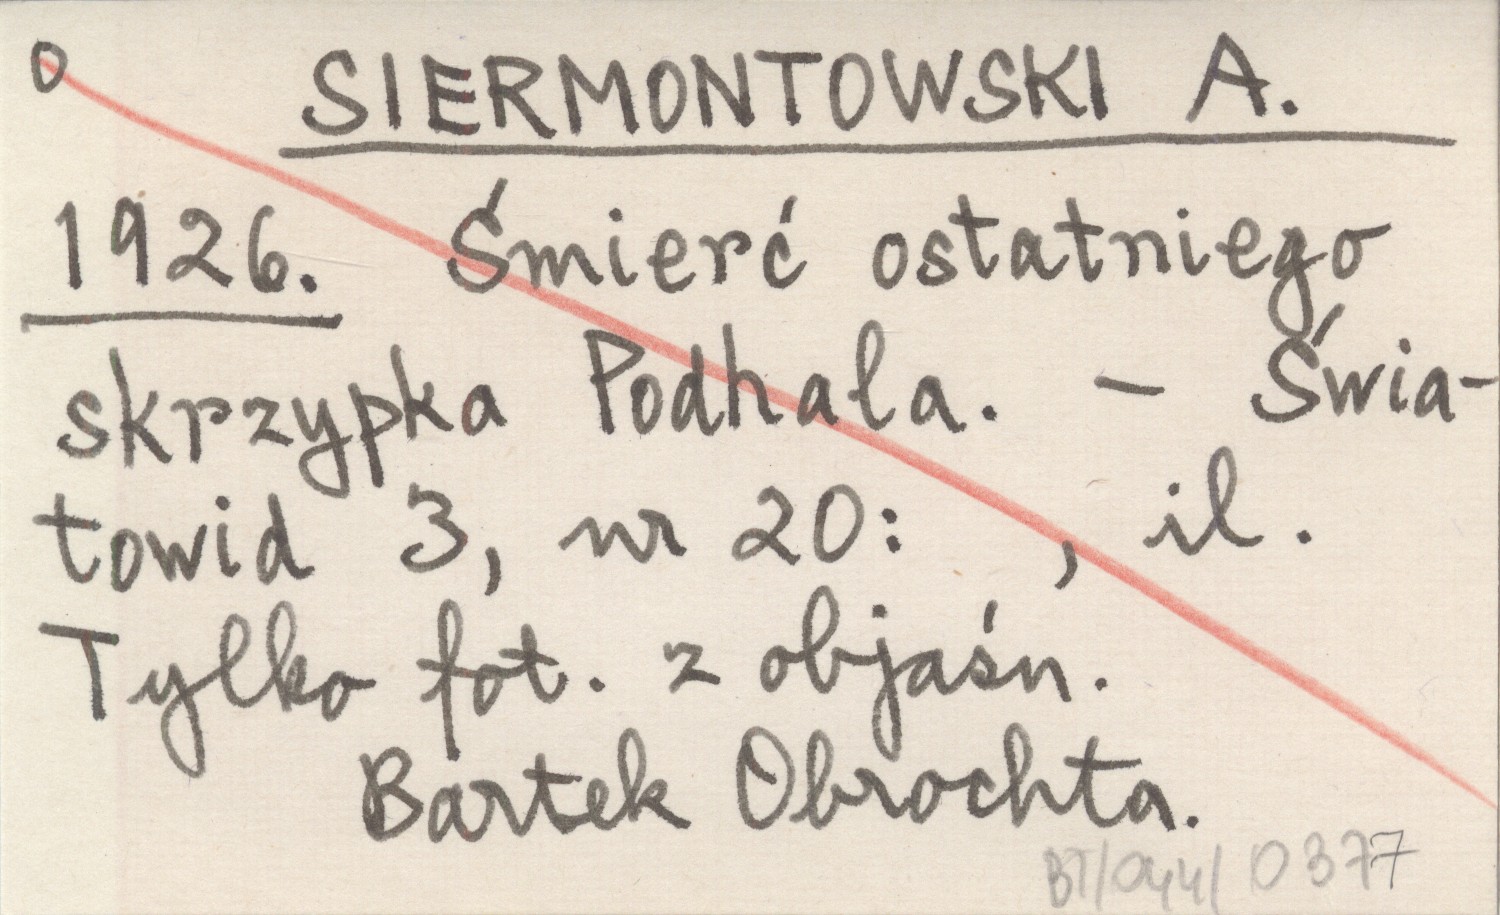 O SIERMONTOWSKI A.
1926. Śmierć ostatniego
skrzypka Podhala. – Świa-
towid 3, nr 20: , il.
Tylko fot. z objaśn.
Bartek Obrochta.
BT/044/ 0377